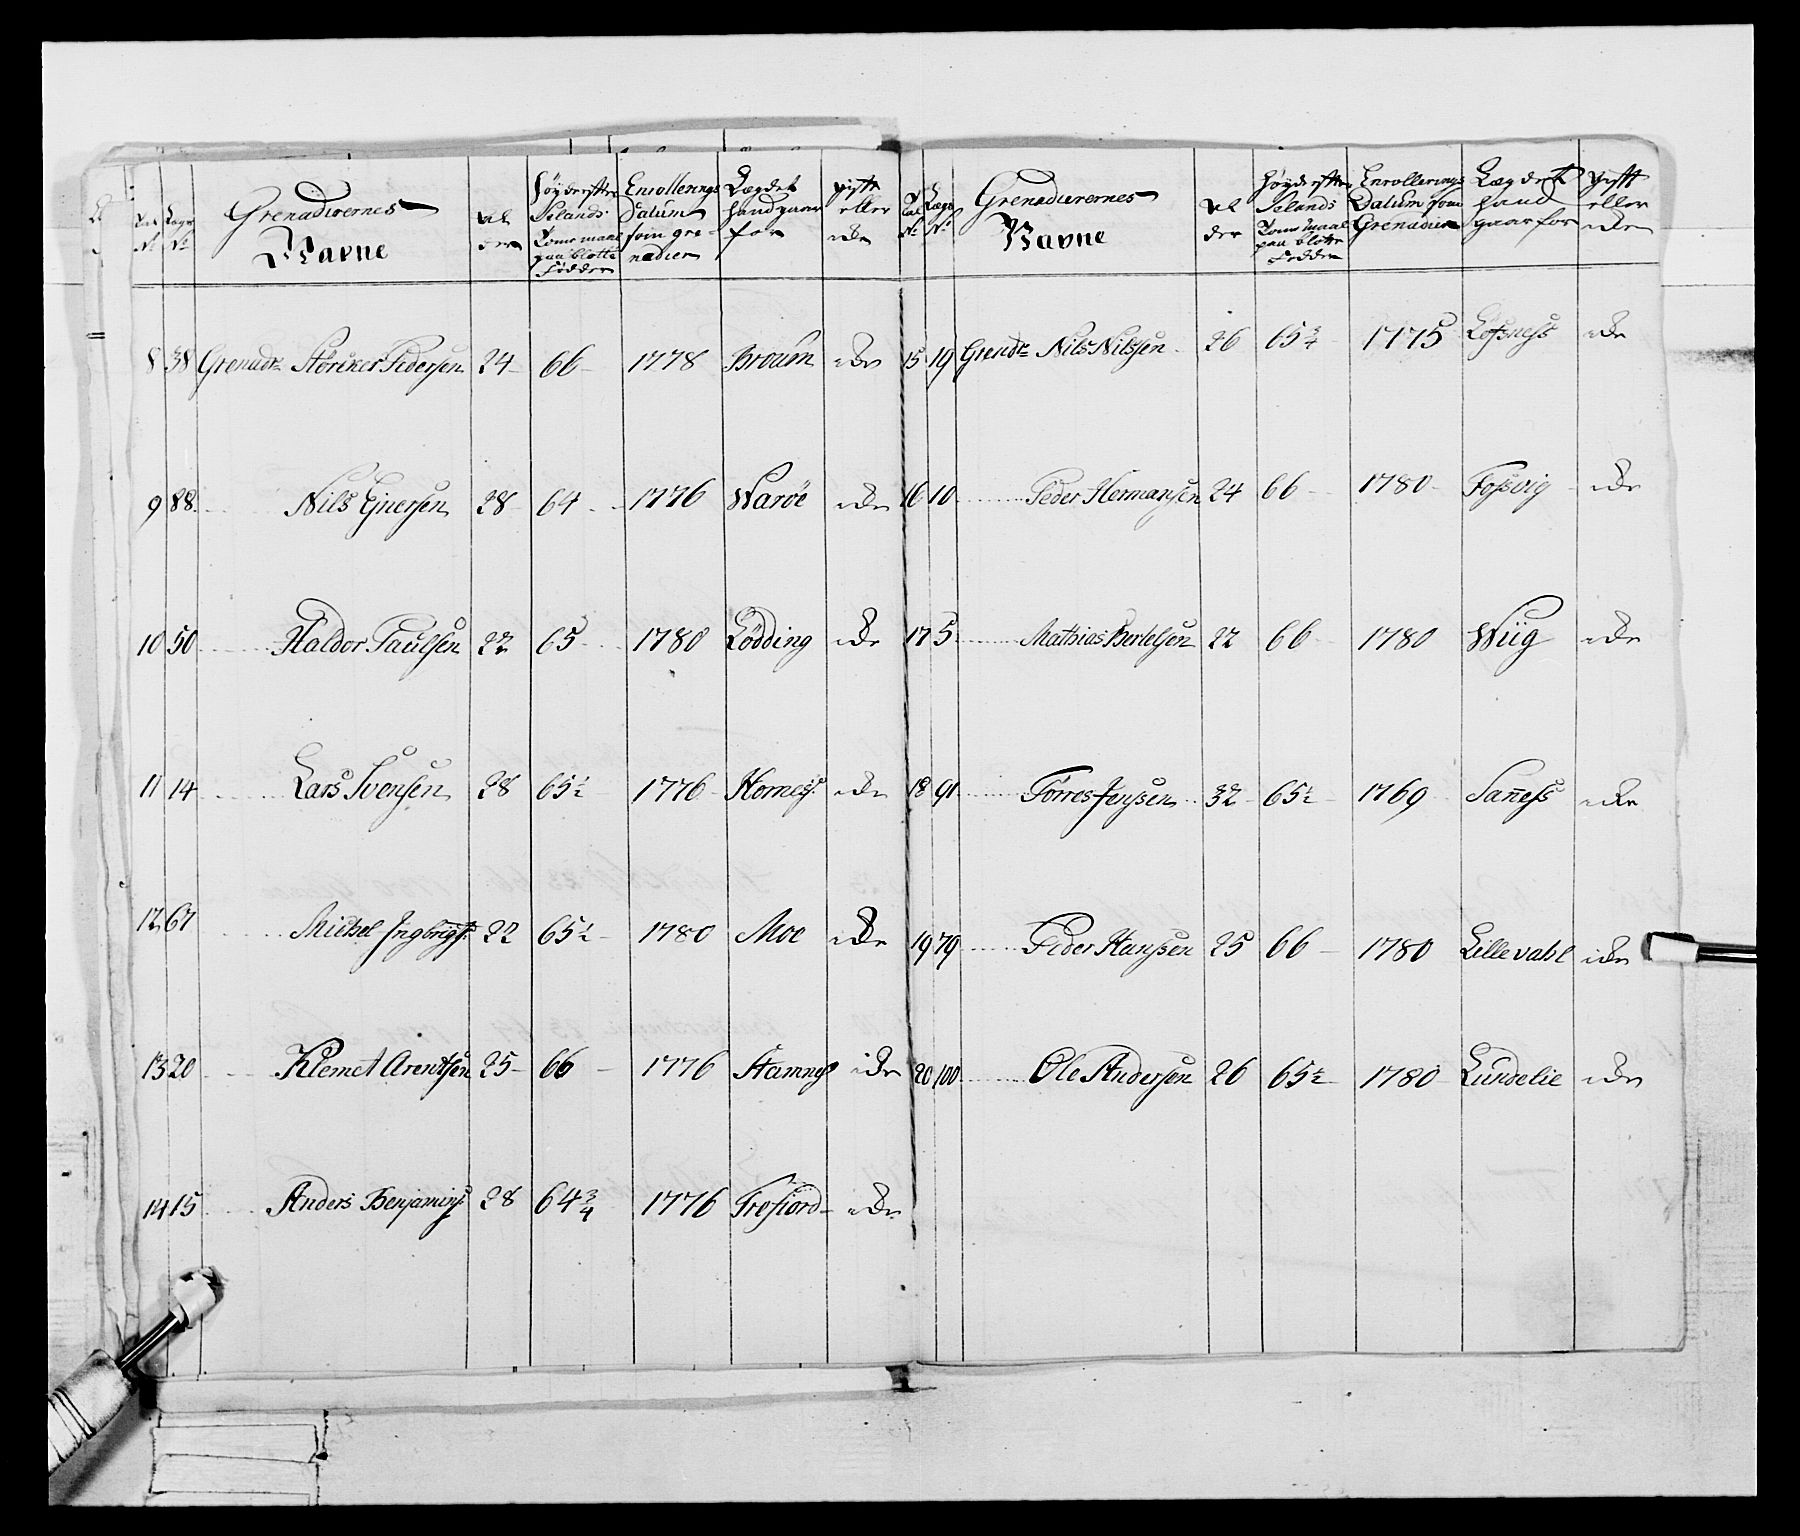 Grenadirernes
Navne
Al
der
Høyde efter
Selands
Tome maal
paa blotte
Fødder
Enrollerings
Datum
som gre-
nadier
Lægdet
hand gaar
for
gift
eller
ikke
8 38 Grenadr Störiker Pedersen 24 66 1778 Broum ikke
9 88 Nils Ejnersen 28 64 1776 Warøe ikke
10 50 Haldor Paulsen 22 65 1780 Lødding ikke
11 14 Lars Svensen 28 65½ 1776 Hornes ikke
12 67 Michel Ingbrigts: 22 65½ 1780 Moe ikke
13 20 Klemet Arentsen 25 66 1776 Stamnes ikke
14 15 Anders Benjamins: 28 64¾ 1776 Trefiord ikke
Tal
No
Lægd
No
Grenadirernes
Navne
Al
der
Høyde efter
Selands
Tome maal
paa blotte
Fødder
Enrollerings
Datum som
Grenadier
Lægdet
hand
gaar for
Gifft
eller
ikke
15 19 Grendr Nils Nilssen 26 65¾ 1775 Lofsness ikke
16 10 Peder Hermansen 24 66 1780 Fossvig ikke
17 5 Mathias Bertelsen 22 66 1780 Wiig ikke
18 91 Törres Jensen 32 65½ 1769 Saness ikke
19 79 Peder Hanssen 25 66 1780 Lillevahl ikke
20 100 Ole Andersen 26 65½ 1780 Lurdelie ikke